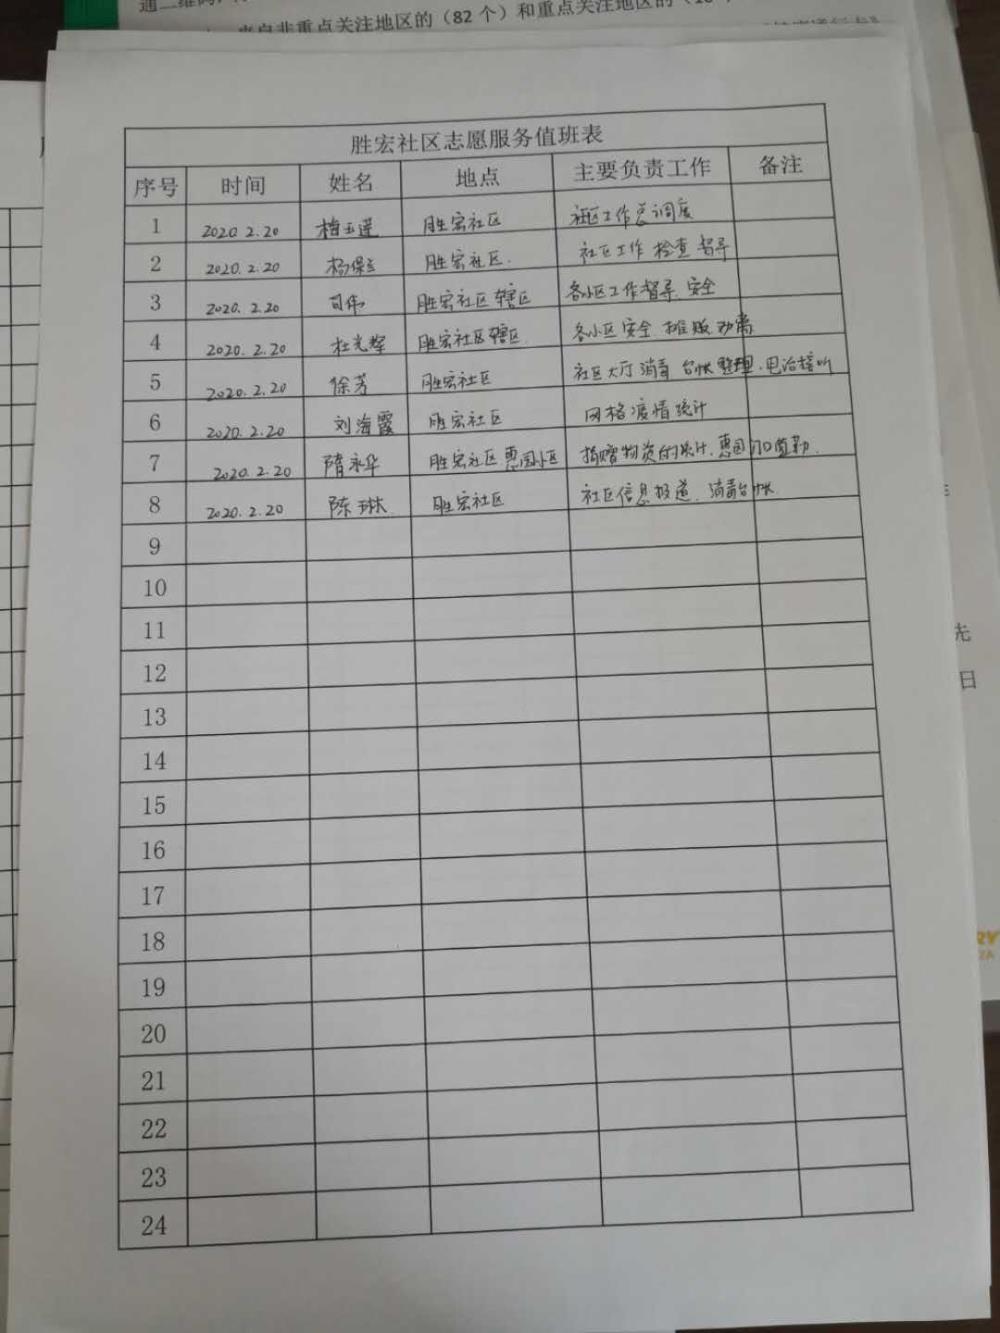 通二维码
来自非重点关注地区的（82 个）和重点关注地区的
胜宏社区志愿服务值班表
序号 时间 姓名 地点 主要负责工作 备注
1 2020.2.20 梅玉莲 胜宏社区 社区工作总调度
2 2020.2.20 杨保 胜宏社区. 社区工作 检查 督导
3 2020.2.20 司伟 胜宏社区 辖区 各小区工作督导.安全
4 2020.2.20 杜光辉 胜宏社区辖区 各小区安全 摊贩 劝离
5 2020.2.20 徐芳 胜宏社区 社区大厅消毒 台帐整理.电话接听
6 2020.2.20 刘海霞 胜宏社区 网格疫情统计
7 2020.2.20 隋永华 胜宏社区.惠园小区 捐赠物资的统计.惠园门口值勤.
8 2020.2.20 陈琳 胜宏社区 社区信息报道.消毒台帐
9
10
11
12
13
14
15
16
17
18
19
20
21
22
23
24
日